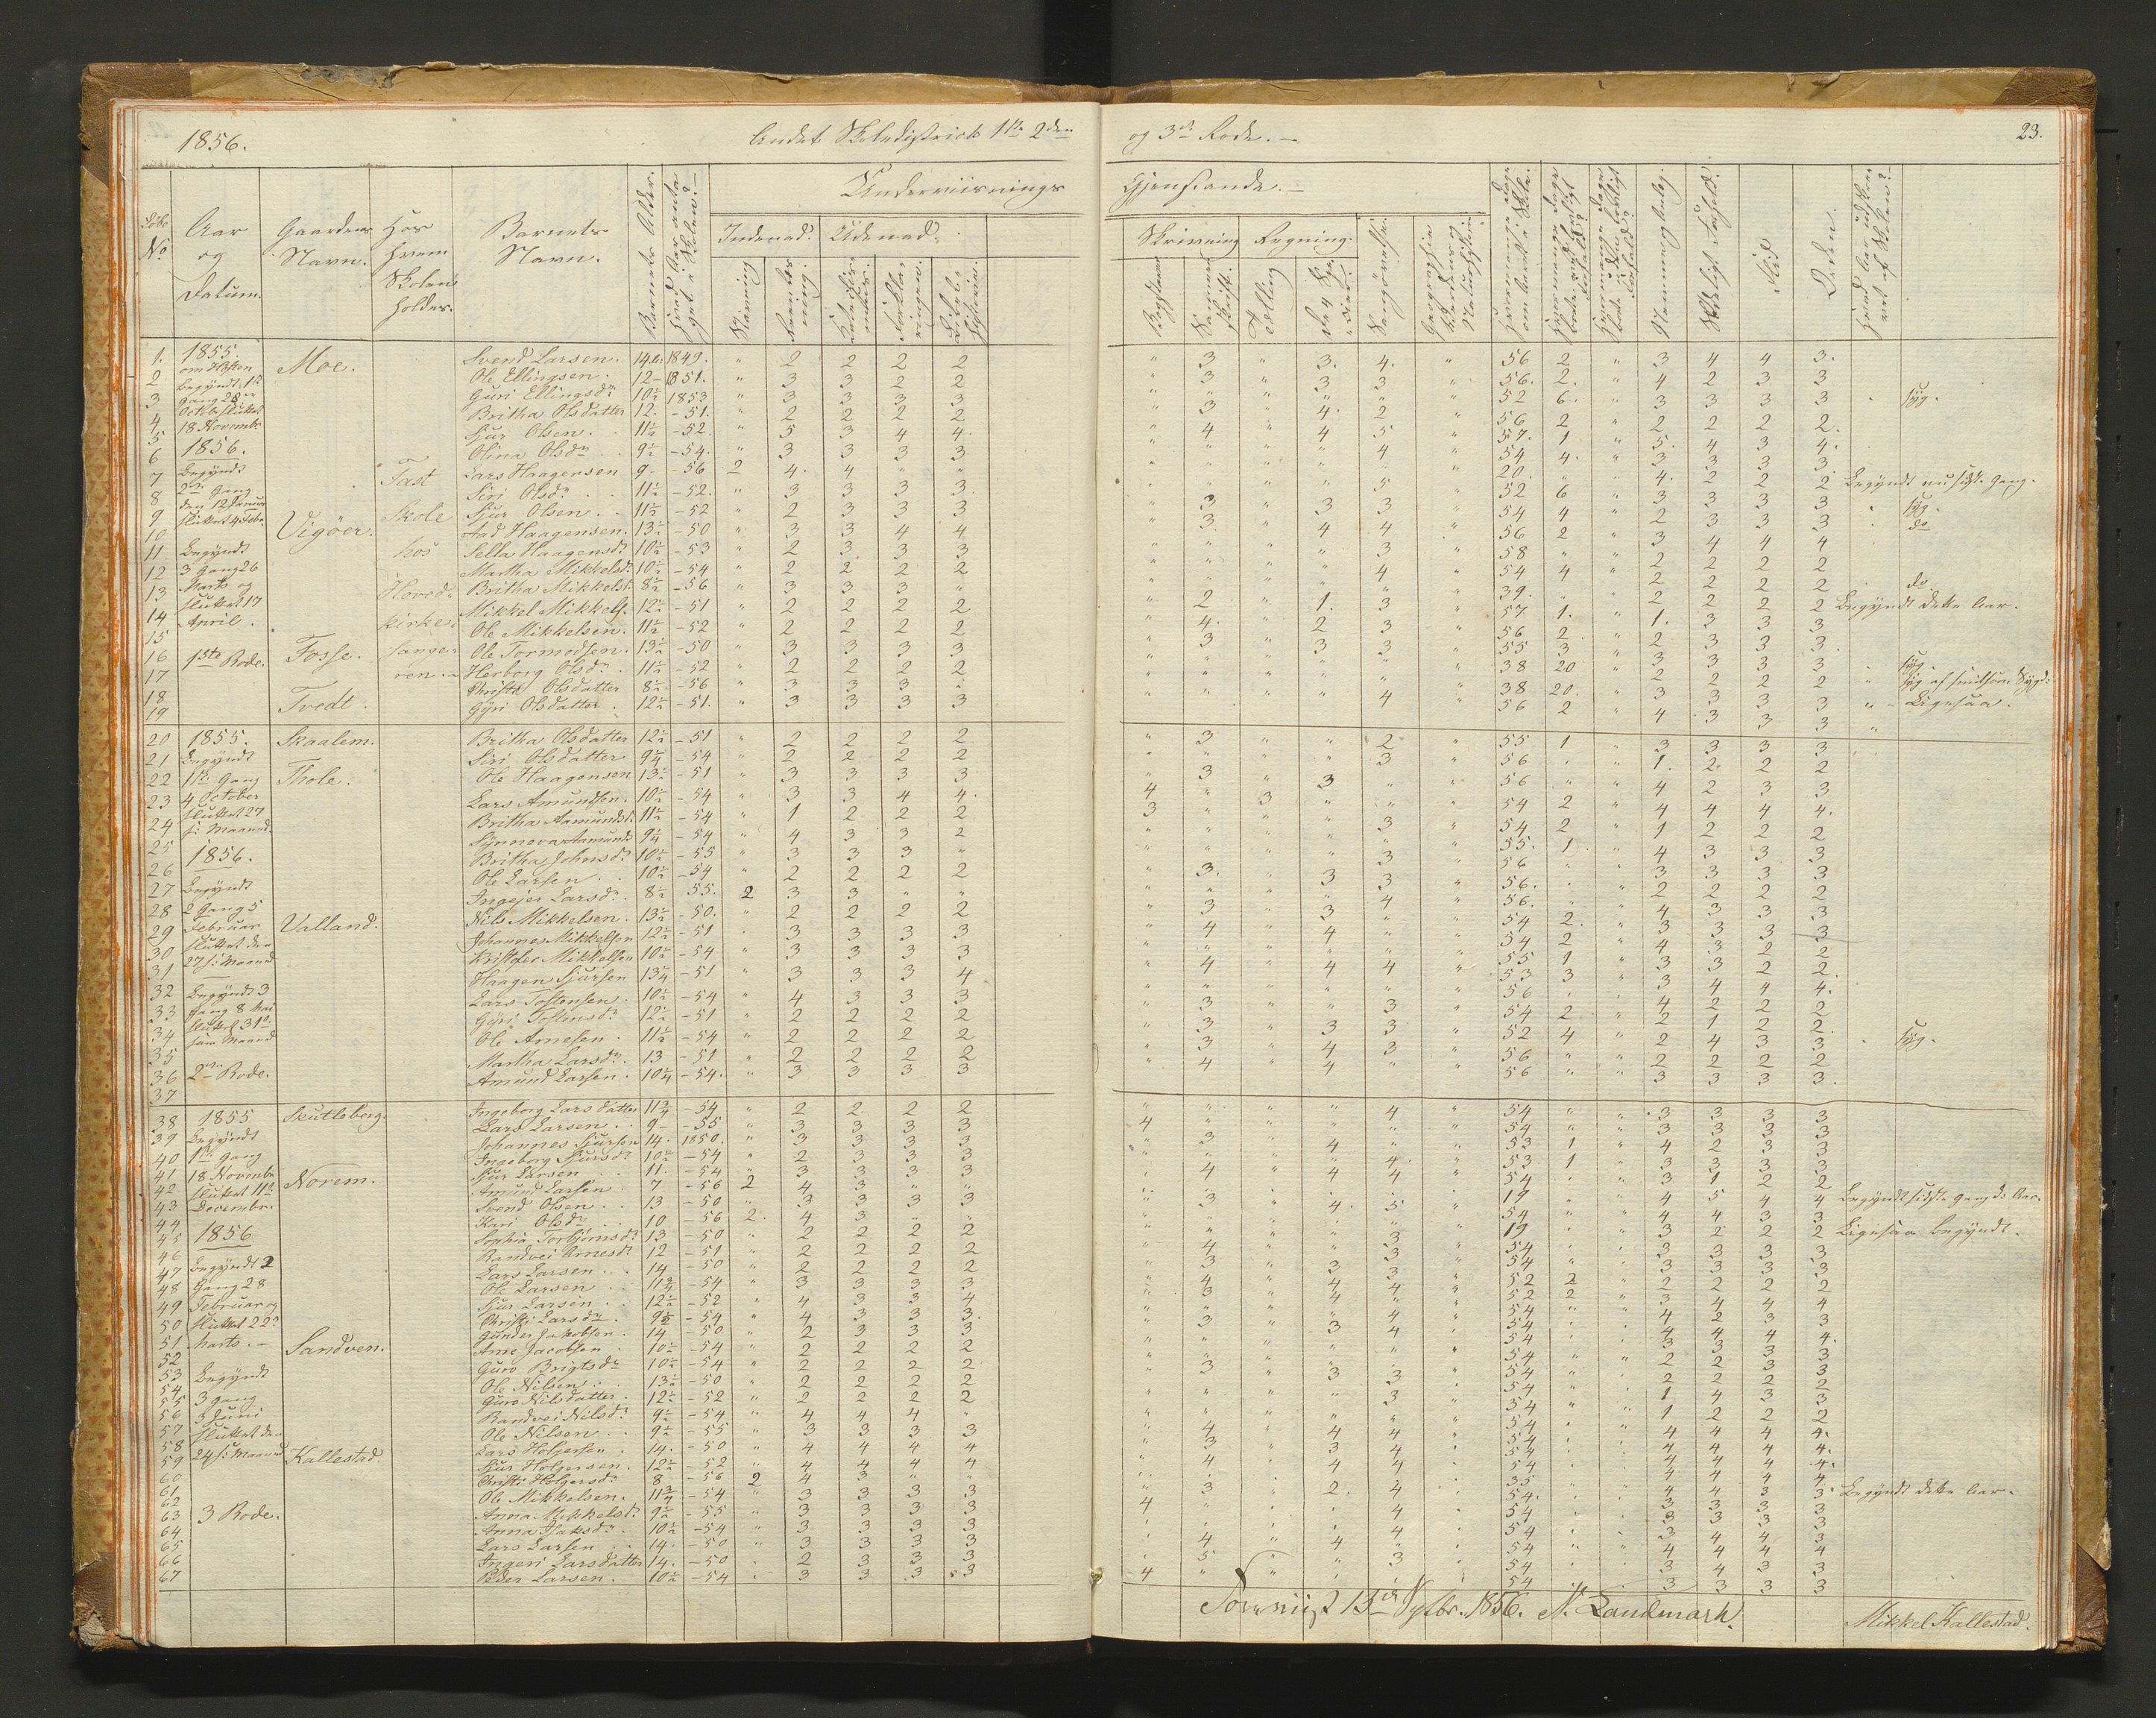 1856. Andet Skoledistrict 1ste 2den og 3die Rode. — 23.
Underviisnings Gjenstande. —
Aar og Datum. Gaardens Navn. Hos hvem Skolen holdes. Barnets Navn. Barnets Alder. Indenad. Udenad. Skrivning Regning. Nemme Flid
1. 1855 Moe. Svend Larsen. 14 1849. " 2 2 2 2 " 3 " 3. 4. " 56 2 " 3 4 4 3.
2 Ole Ellingsen. 12 - 1851. " 3 3 2 2 " 3 " 3 3 " 56. 2. " 4 2 3 3
3 Guri Ellingsdr 10½ 1853 " 3 3 3 3 52 6. " 3 3 3 3 syg.
4. 18 Novembr Britha Olsdatter 12. - 51. " 2 2 2 2 " 3 " 4. 2 " 56 2 " 2 2 2 2.
5 1856. Sjur Olsen. 11½ - 52. " 5 3 4 4. " 4 " 4 5 " 57. 1. " 5. 4 3 4.
6 Olina Olsdr 9½ - 54. " 3 3 3 3 4 54 4. " 3 3 3 3
7 Begyndt Fast Lars Haagensen 9. - 56 2 4. 4 " " 20. 4. 2 2 2 Begyndt nu sidste Gang.
8 2den Gang Siri Olsdr 11½ - 52. " 3 3 3 3 5 52 6 " 3 3 3 3 syg.
9 den 12 Januar Skole Sjur Olsen. 11½ - 52 " 2 3 3 3 " 3 " 3 3 54 4 " 2 3 3 3 do
10 Vigöer. Aad Haagensen. 13½ - 50 " 3 3 4 4 " 3. " 4 4 56 2 " 3 4 4 4
11. Begyndt hos Sella Haagensdr 10½ - 53 " 2 3 3 3 3 58 2 2 2 2
12 3 Gang 26 Martha Mikkelsdr 10½ - 54 " 2 2 2 2 4 54 4 " 2 2 2 2 do
13 Marts og Hoved- Britha Mikkelsdr 8½ - 56 " 3 3 3 " 39. 2 2 2 2 Begyndt dette Aar.
14 sluttet 17 April. kirke- Mikkel Mikkels. 12½ - 51 " 2 2 2 2 " 2 " 1. 3 " 57 1. " 1. 3 3 3
15 Ole Mikkelsen. 11½ - 52 " 2 2 2 2 " 4. " 2 3 " 56 2. " 2 3 3 3.
16 1ste Rode. Fosse. sange- Ole Tormodsen. 13½ - 50 " 3 3 3 3 " 3 " 3 3 " 55 3 " 3 3 3 3 syg.
17 ren. Herborg Olsdr 11½ - 52 " 2 2 2 2 38 20 " 2 2 2 2
18 Tvedt. Christi Olsdatter 8½ - 56 " 3 3 3 38 20. " 3 3 3 3 Ligesaa.
19 Gyri Olsdatter. 12½ - 51. " 3 3 3 3 4 56 2 " 4 3 3 3
20 1855. Skaalem. Britha Olsdatter 12½ - 51 " 2 2 2 2 " 3 " " 2 " 55 1 " 3 3 3 3
21 Begyndt Siri Olsdatter 9¼ - 54 " 2 2 2 2 3 56 1. 2. 2 2
22 1ste Gang Thole. Ole Haagensen 13½ - 51 " 3 3 3 3 " 3 " 3 56 4 2 3 3
23 4 October Lars Amundsen. 10½ - 54 " 3 3 4 4. 4 " 3 54 2 " 4 4 4 4.
24 sluttet 27 s: Maaned Britha Aamundsd. 11½ - 54 " 1 2 2 2 3 3 54 2 " 1 2 2 2
25 Synneva Aamunds 9¼ - 54 " 4 3 3 2 55. 1. " 4 3 3 3
26 1856. Britha Johnsdr 10½ - 55 " 3 3 3 " 3 56 3 3 3 3
27 Begyndt Ole Larsen. 10½ - 54 " 2 2 2 2 " 3. " 3 3 56. 2 2 2 2
28 2 Gang 5 Ingejer Larsdr 8½ - 55. 2 3 3 " " 4 56. 4 3 3 3
29 Februar Valland. Nils Mikkelsen. 13½ - 50. " 2 2 2 2 " 3 " 3 54 2. " 3 3 3 3
30 sluttet den Johannes Mikkelsen 12½ - 51 " 3 3 3 3 " 4 " 4 54 2 " 4 3 2 2
31 27 s: Maaned Kristofer Mikkelsen 10½ - 54 " 3 3 3 3 55 1 " 3 3 2 2.
32 Begyndt 3 Haagen Sjursen 13¼ - 51 " 3 3 3 4 " 4 " 4 4 53 3 " 3 4 4 4.
33 Gang 8 Mai Lars Tostensen. 10½ - 54 " 4 3 3 3 56 4 2 2 2
34 sluttet 31te Gyri Tostensdr 12½ - 51 " 2 2 2 2 " 3 " " 3 54 2 " 2 1 2 2.
35 samme Maaned Ole Arnesen. 11½ - 54 " 2 2 2 2 " 3 " 3 3 52 4 " 2 4 3 3 syg.
36 2den Rode. Martha Larsdr 13 - 51 " 2 2 2 2 " 3 " 4 3 56 2 2 2 2
37 Amund Larsen. 10¼ - 54. " 3 3 3 3 " 4 " 4 56 3 3 3 3.
38 1855 Skutleberg. Ingeborg Larsdatter 11¾ - 54 " 2 2 2 2 4 " 54 3 3 3 3
39 Begyndt Lars Larsen. 9 - 55 " 3 3 3 3 4 54 3 3 3 3
40 1ste Gang Johannes Sjursen 14. 1850. " 3 3 3 3 " 3 " 4 53 1 " 4 2 3 3
41 18 Novembr Ingeborg Sjursdr 10½ - 54 " 2 3 3 3 4. 53 1 3 3 3 3
42 sluttet 11te Norem. Sjur Larsen 11. - 54 " 3 3 3 3 4 4 4 54 3 1 2 2
43 Decembr. Amund Larsen. 7 - 56 2 4 3 " " 17 4 5 4 4 Begyndt sidste Gang d: Aar.
44 Svend Olsen. 13 - 50 " 3 3 3 3 3 4. 5 54 4 4 3 3
45 1856 Kari Olsdr 10 - 56 2. 4 3 19 3 2 2 2 Ligesaa begyndt.
46 Sophia Torbjörnsdr 13 - 50 " 2 2 2 2 3 54 3 3 3 3
47 Begyndt 2 Randvei Arnesdr 12 - 51 " 2 2 2 2 4 54 3 3 3 3
48 Gang 28 Lars Larsen. 14 - 50 " 2 2 2 2 3 3 3 52 2 " 2 2 2 2
49 Februar og Ole Larsen. 11¾ - 54 " 3 3 3 3 4 4 4 52 2 " 3 4 4 4
50 sluttet 22de Sjur Larsen. 12½ - 52 " 4 3 3 4 3 4 54 4 2 3 3
51 Marts. — Sandven. Christi Larsdr 9½ - 54 " 4 3 3 3 4 54 4 4 4 4.
52 Gunder Jakobsen. 14 - 50 " 2 3 3 3 3 3 54 3 3 3 3
53 Begyndt Arne Jacobsen. 10½ - 54 " 2 2 2 2 54 2 2 3 3
54 Guro Brigtsdr 10½ - 54 " 2 2 2 2 54 2 2 2 2
55 3 Gang Ole Nilsen. 13½ - 50 " 2 2 2 2 3 3 3 54 1 4 3 3
56 3 Juni Guro Nilsdatter. 12½ - 52 " 2 2 2 2 3 54 1 2 2 2
57 sluttet den Randvei Nilsdr 9½ - 54 " 4 4 4 54 4 4 4 4.
58 24 s: Maaned Ole Nilsen. 9½ - 55 " 3 3 3 3 4 4 4 54 4 4 4 4.
59 Kallestad. Lars Holgersen. 14. - 50 " 4 4 4 4 3 3 4 54 4 4 4 4.
60 Sjur Holgersen. 12½ - 52 " 4 4 4 4 4 4 4 54 4 4 4 4
61 Christi Holgersdr 8 - 56 2 4 3 " " 35 4 4 3 3. Begyndt dette Aar.
62 Ole Mikkelsen. 11¾ - 54 " 3 3 3 3 3 2. 4 54. 3 3 3 3
63 3 Rode. Anna Mikkelsd. 9½ - 55 " 3 3 3 3 4 4 54 3 3 3 3
64 Anna Isaksdr 10½ - 54 " 3 3 3 3 4 54 3 4 4 3
65 Lars Larsen 14. - 50 " 3 3 3 3 4 4 54 4 4 4 4
66 Ingeri Larsdatter 14. - 50 " 2 3 3 3 5 3 54 3 4 3 3
67 Peder Larsen. 10½ - 54 " 3 3 3 3 4 54 3 3 3 3
Foreviist 13de Septbr. 1856. N. Landmark.
Mikkel Kallestad.